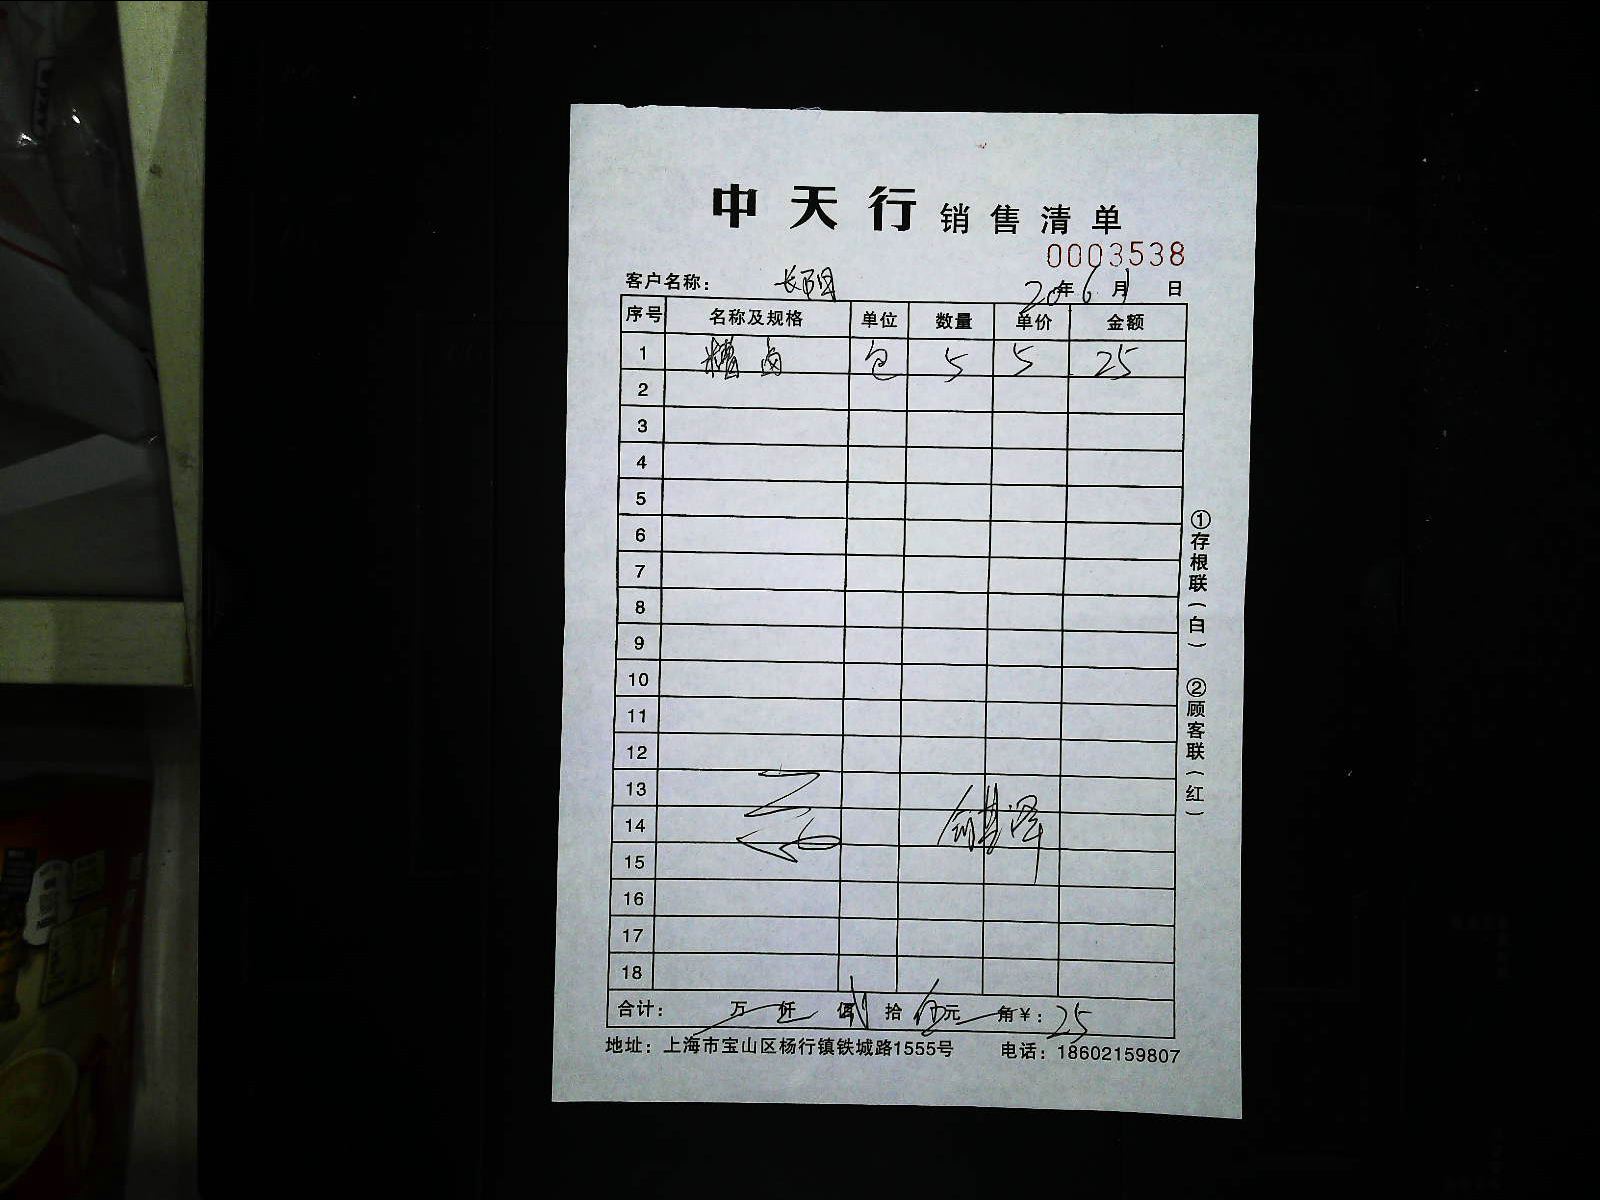 中天行 销售清单
0003538
客户名称： 20年6月1日
序号 名称及规格 单位 数量 单价 金额
1 糟卤 包 5 5 25
2
3
4
5
6
7
8
9
10
11
12
13
14
15
16
17
18
合计： 万 仟 佰 贰拾 伍元 角￥：25
地址：上海市宝山区杨行镇铁城路1555号 电话：18602159807
①存根联（白） ②顾客联（红）